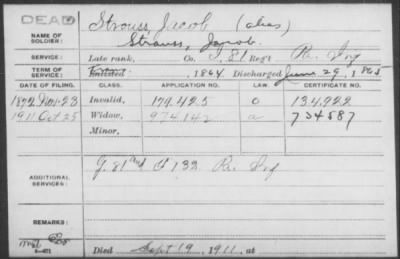 DEAD
Strouss, Jacob (alias)
NAME OF SOLDIER:
Strauss, Jacob.
SERVICE: Late rank, Co. I, 81 Reg't Pa. Inf
TERM OF SERVICE: Enlisted 1864 Discharged June 29, 1865
DATE OF FILING. CLASS. APPLICATION NO. LAW. CERTIFICATE NO.
1872 Nov. 23 Invalid, 179.425 134.922
1911 Oct 25 Widow, 974142 a 734587
Minor,
ADDITIONAL SERVICES: G. 81 and 132 Pa. Inf
REMARKS:
Died Sept 19, 1911, at